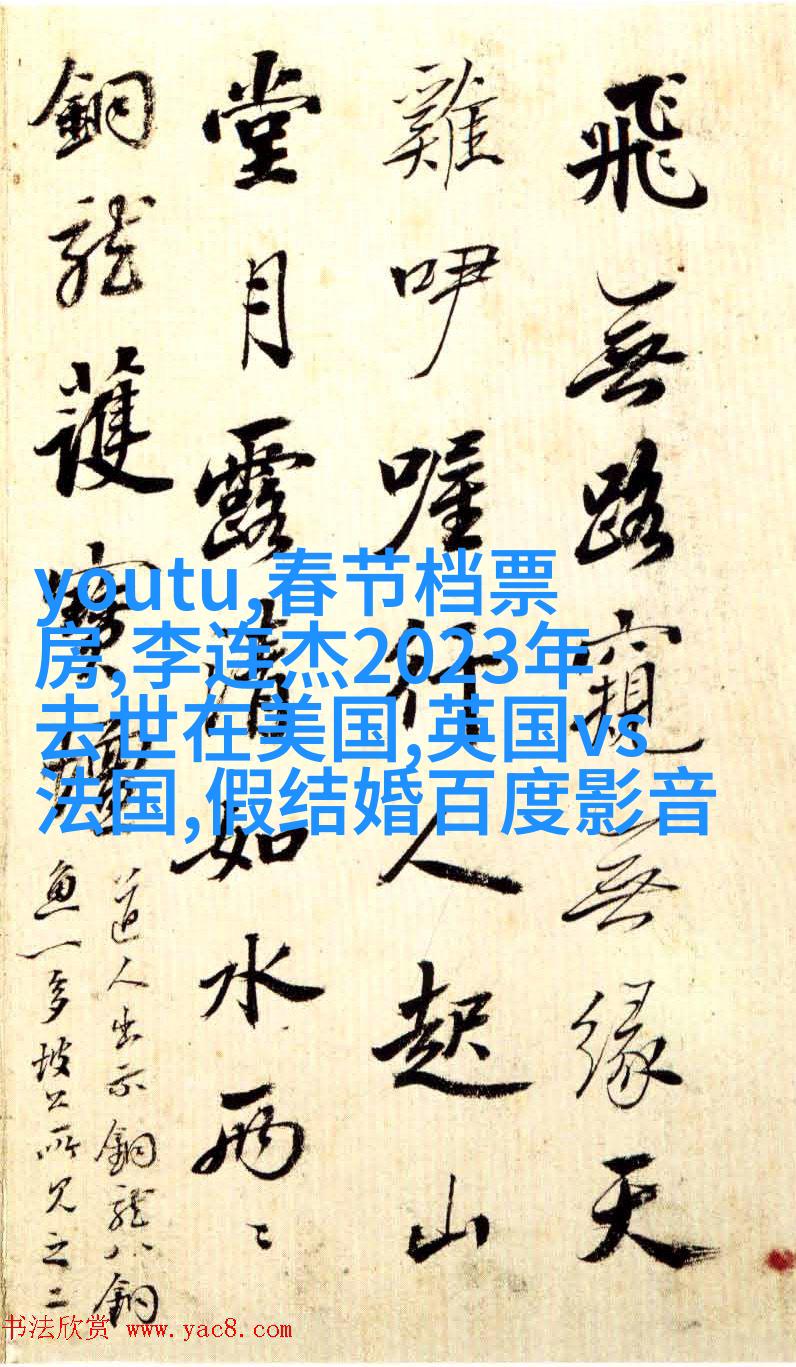 飛無路窺無緣天
雞咿喔行人起山
堂月露清如水兩〻
銅龍護寶
道人出示銅龍八銅
魚一多坡公所見之二
youtu,春节档票
房,李连杰2023年
去世在美国,英国vs
法国,假结婚百度影音
书法欣赏 www.yac8.com